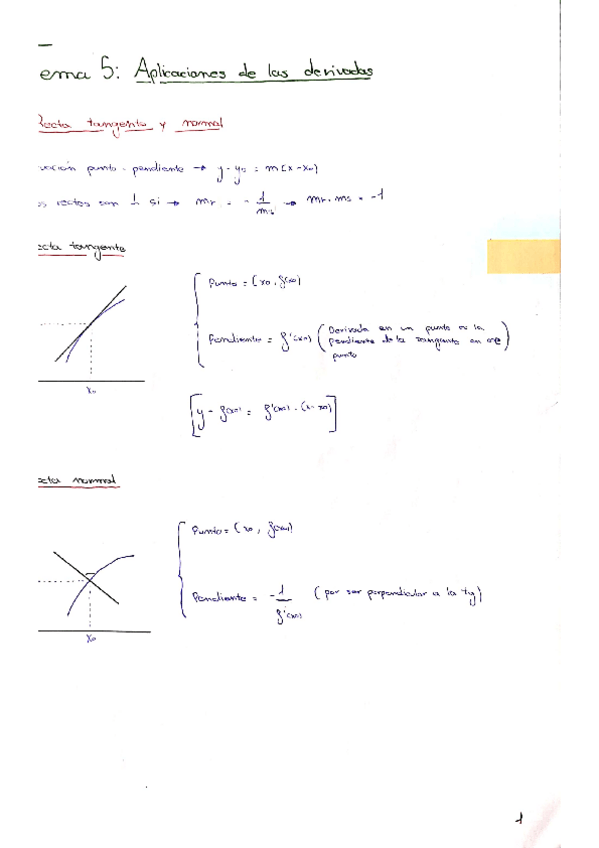 ema 5: Aplicaciones de las derivadas
Recta tangente y normal
uación punto-pendiente → y - y₀ = m(x - x₀)
os rectas son ⊥ si → mr = - 1/ms → mr · ms = -1
ecta tangente
Punto = (x₀, f(x₀))
Pendiente = f'(x₀) (Derivada en un punto es la pendiente de la tangente en ese punto)
x₀
[y - f(x₀) = f'(x₀) · (x - x₀)]
ecta normal
Punto = (x₀, f(x₀))
Pendiente = - 1/f'(x₀) (por ser perpendicular a la tg)
x₀
1